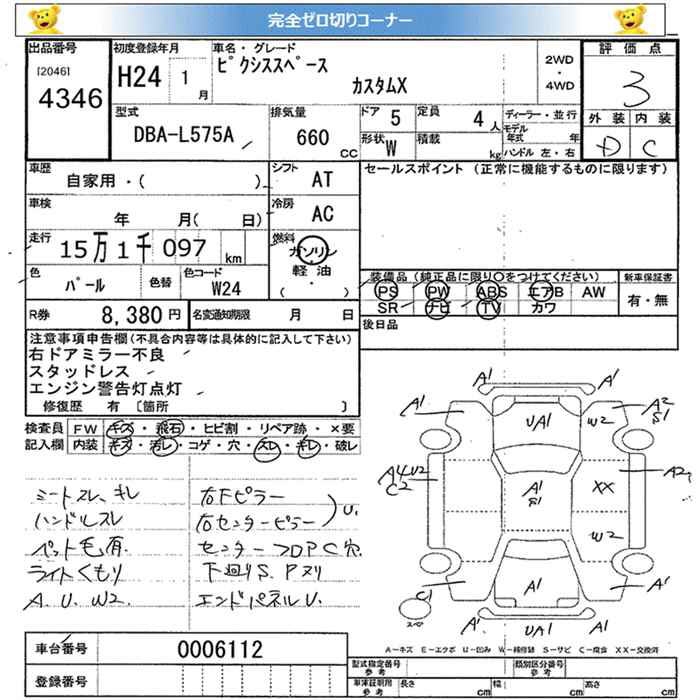 完全ゼロ切りコーナー
出品番号
[2046]
4346
初度登録年月
H24 1月
車名・グレード
ピクシススペース
カスタムX
2WD
・
4WD
評価点
3
外装 内装
D C
型式
DBA-L575A
排気量
660
CC
ドア 5
定員 4人
形状 W
積載 kg
ディーラー・並行
モデル年式 年
ハンドル 左・右
車歴
自家用・( )
シフト AT
車検
年 月( 日)
冷房 AC
走行
15万1千097km
燃料
ガソリン
軽油
( ・ )
色
パール
色替
色コード
W24
R券 8,380円
名変通知期限 月 日
セールスポイント (正常に機能するものに限ります)
装備品 (純正品に限り○をつけてください)
新車保証書
PS PW ABS エアB AW
SR ナビ TV カワ
有・無
後日品
注意事項申告欄(不具合内容等は具体的に記入して下さい)
右ドアミラー不良
スタッドレス
エンジン警告灯点灯
修復歴 有 [箇所 ]
検査員記入欄
FW キズ・飛石・ヒビ割・リペア跡・×要
内装 キズ・汚レ・コゲ・穴・スレ・キレ・破レ
シートスレ、キレ
ハンドルスレ
ペット毛有.
ライトくもり
A. U. W2.
右Fピラー
右センターピラー ) U.
センターフロアC穴
下廻りS. Pヌリ
エンドパネルU.
A1 A1
A1 UA1 W2 A2 S1
A4 U2 C2 A1 S1 XX A2
W2
C1 A1 A1
A1 UA1 A1
A-キズ E-エクボ U-凹み W-補修跡 S-サビ C-腐食 XX-交換済
車台番号 0006112
登録番号
型式指定番号 参考
類別区分番号 参考
車庫証明用 参考
長さ cm 幅 cm 高さ cm